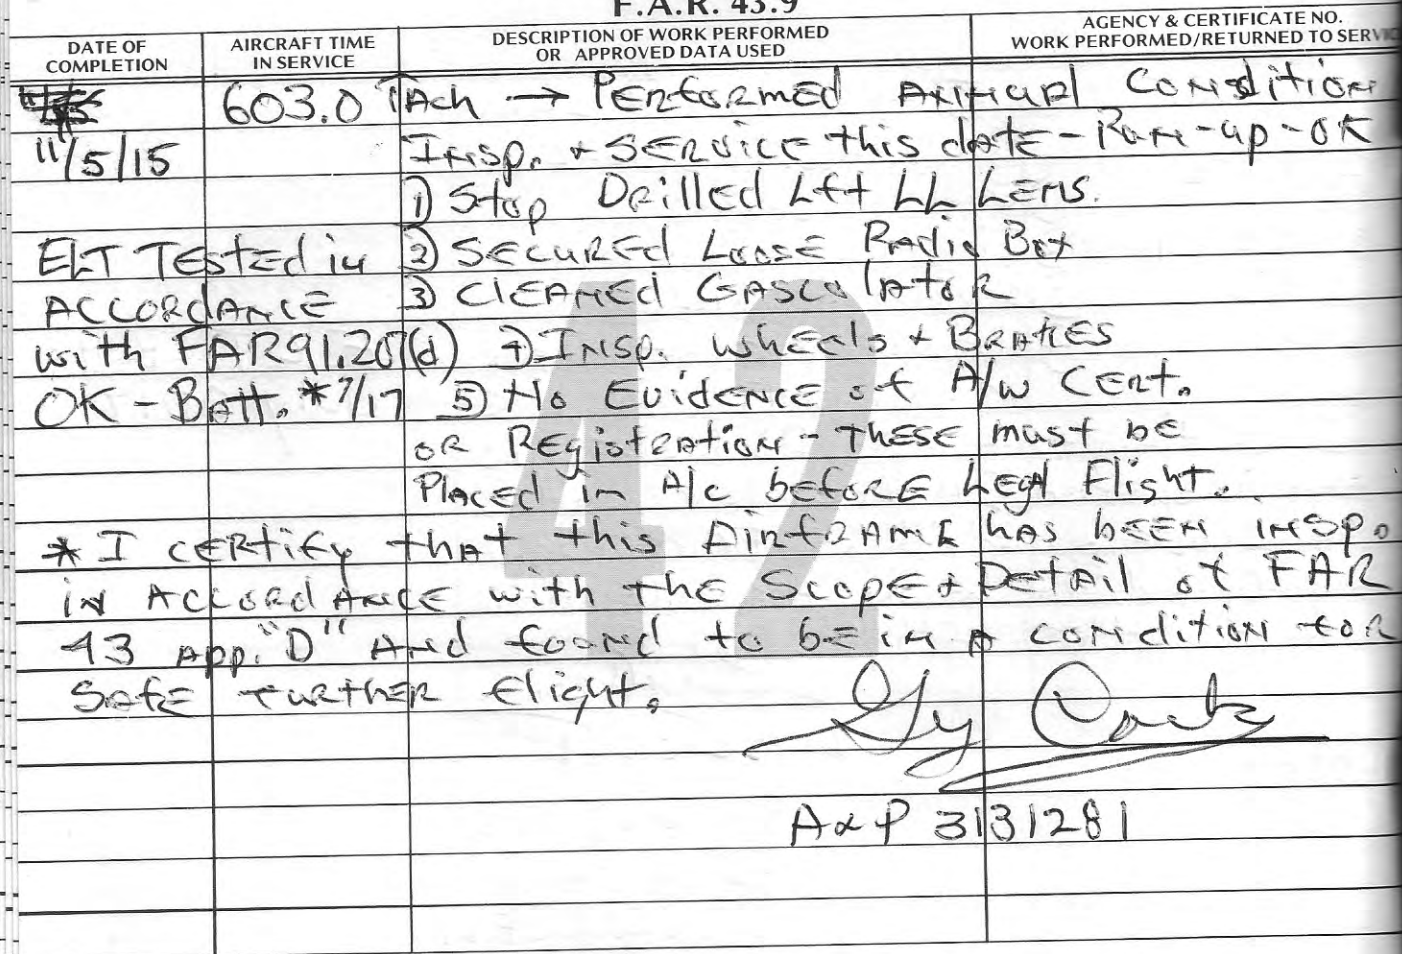 F.A.R. 43.9
DATE OF COMPLETION
AIRCRAFT TIME IN SERVICE
DESCRIPTION OF WORK PERFORMED OR APPROVED DATA USED
AGENCY & CERTIFICATE NO. WORK PERFORMED/RETURNED TO SERVIC
603.0 TAch → PERformed Annual Condition
11/5/15 Insp. + SERVICE this date - Run-up - OK
1) Stop Drilled Lft LL Lens.
ELT TEsted in 2) SECURED Loose Radio Box
ACCORDANCE 3) ClEANEd GAScolAtoR
with FAR 91.207(d) 4) Insp. wheels + BRAKES
OK - Batt. * 7/17 5) No EvidENCE of A/W CERt.
or REgistration - THESE must be
PlACEd in A/c before Legal Flight.
* I certify that this AirframE has been insp.
in ACCordANCE with the Scope + Detail of FAR
43 App. "D" And found to be in A condition for
SafE further flight.
A&P 3131281
42